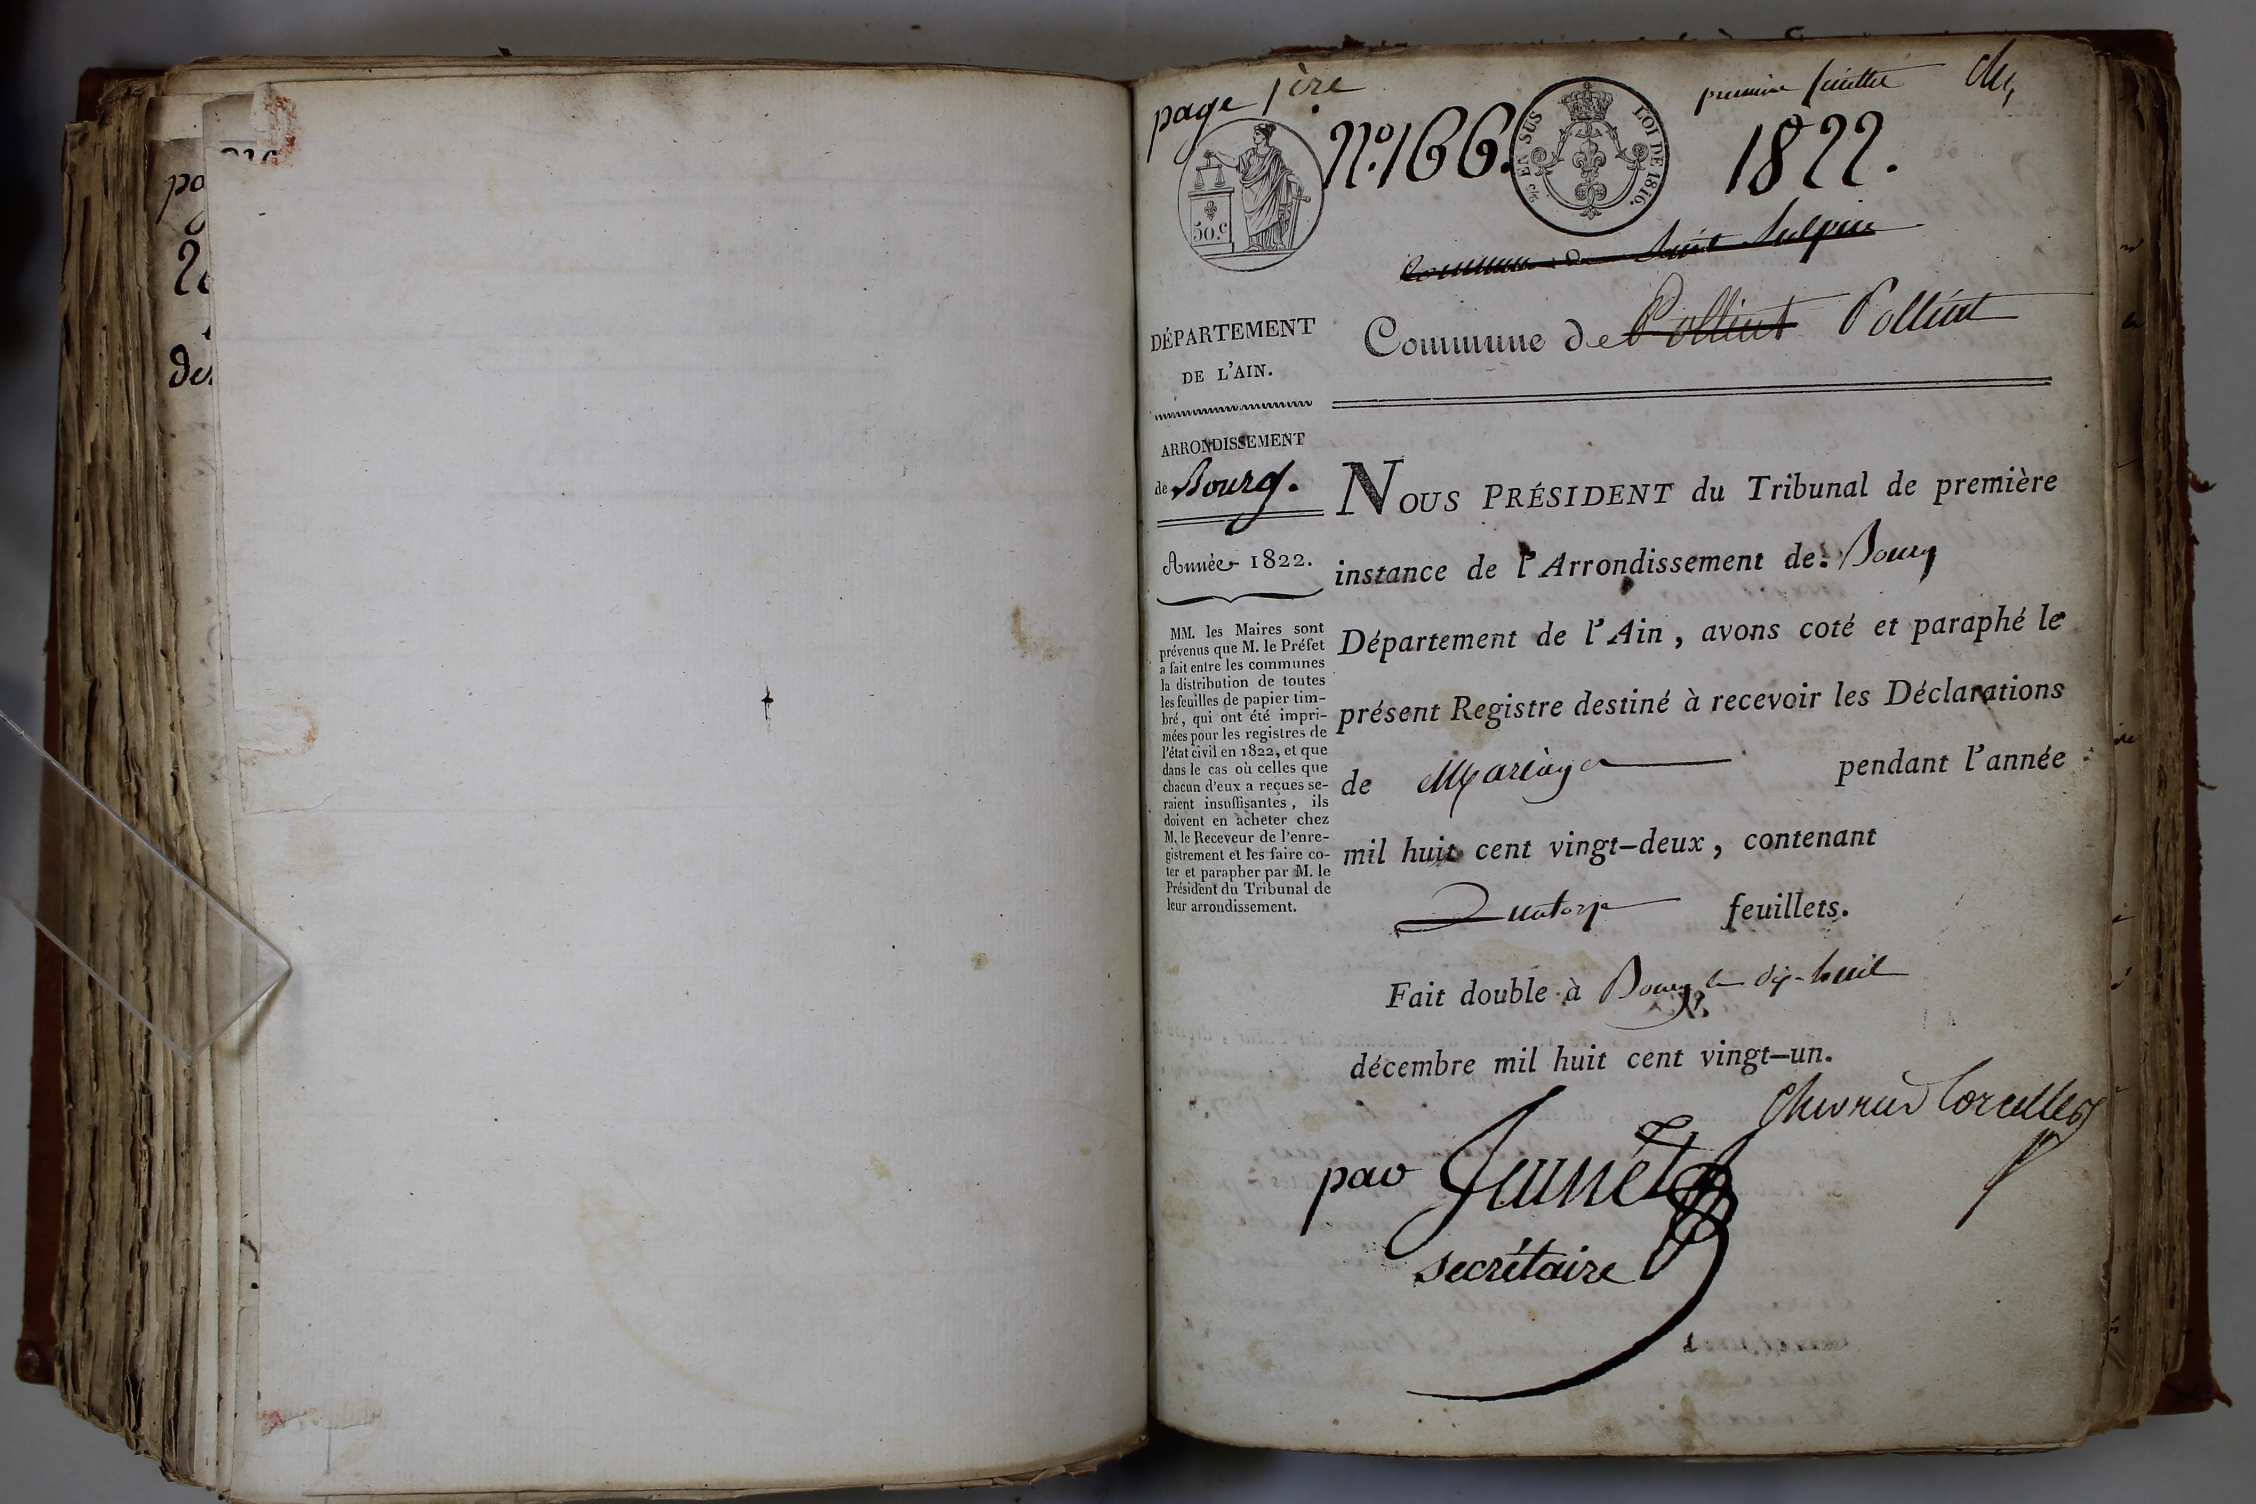 po
de
page 1ère
premier feuillet
N.º 166.
EN SUS
LOI DE 1816.
1822.
50.c
Commune de Saint Sulpice
Commune de Polliat Polliat
DÉPARTEMENT
DE L'AIN.
ARRONDISSEMENT
de Bourg.
Année 1822.
MM. les Maires sont
prévenus que M. le Préfet
a fait entre les communes
la distribution de toutes
les feuilles de papier tim-
bré, qui ont été impri-
mées pour les registres de
l'état civil en 1822, et que
dans le cas où celles que
chacun d'eux a reçues se-
raient insuffisantes, ils
doivent en acheter chez
M. le Receveur de l'enre-
gistrement et les faire co-
ter et parapher par M. le
Président du Tribunal de
leur arrondissement.
NOUS PRÉSIDENT du Tribunal de première
instance de l'Arrondissement de Bourg
Département de l'Ain, avons coté et paraphé le
présent Registre destiné à recevoir les Déclarations
de Mariage pendant l'année
mil huit cent vingt-deux, contenant
Quatorze feuillets.
Fait double à Bourg le dix-huit
décembre mil huit cent vingt-un.
Chevrier Corcelles
par
secrétaire